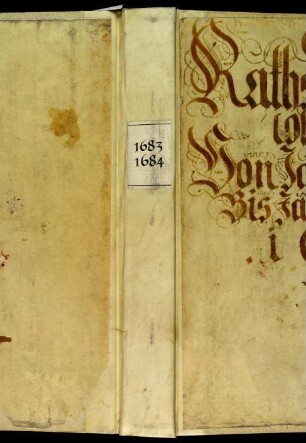 1683
1684
Raths
Von Ja
Bis Jä
i 6